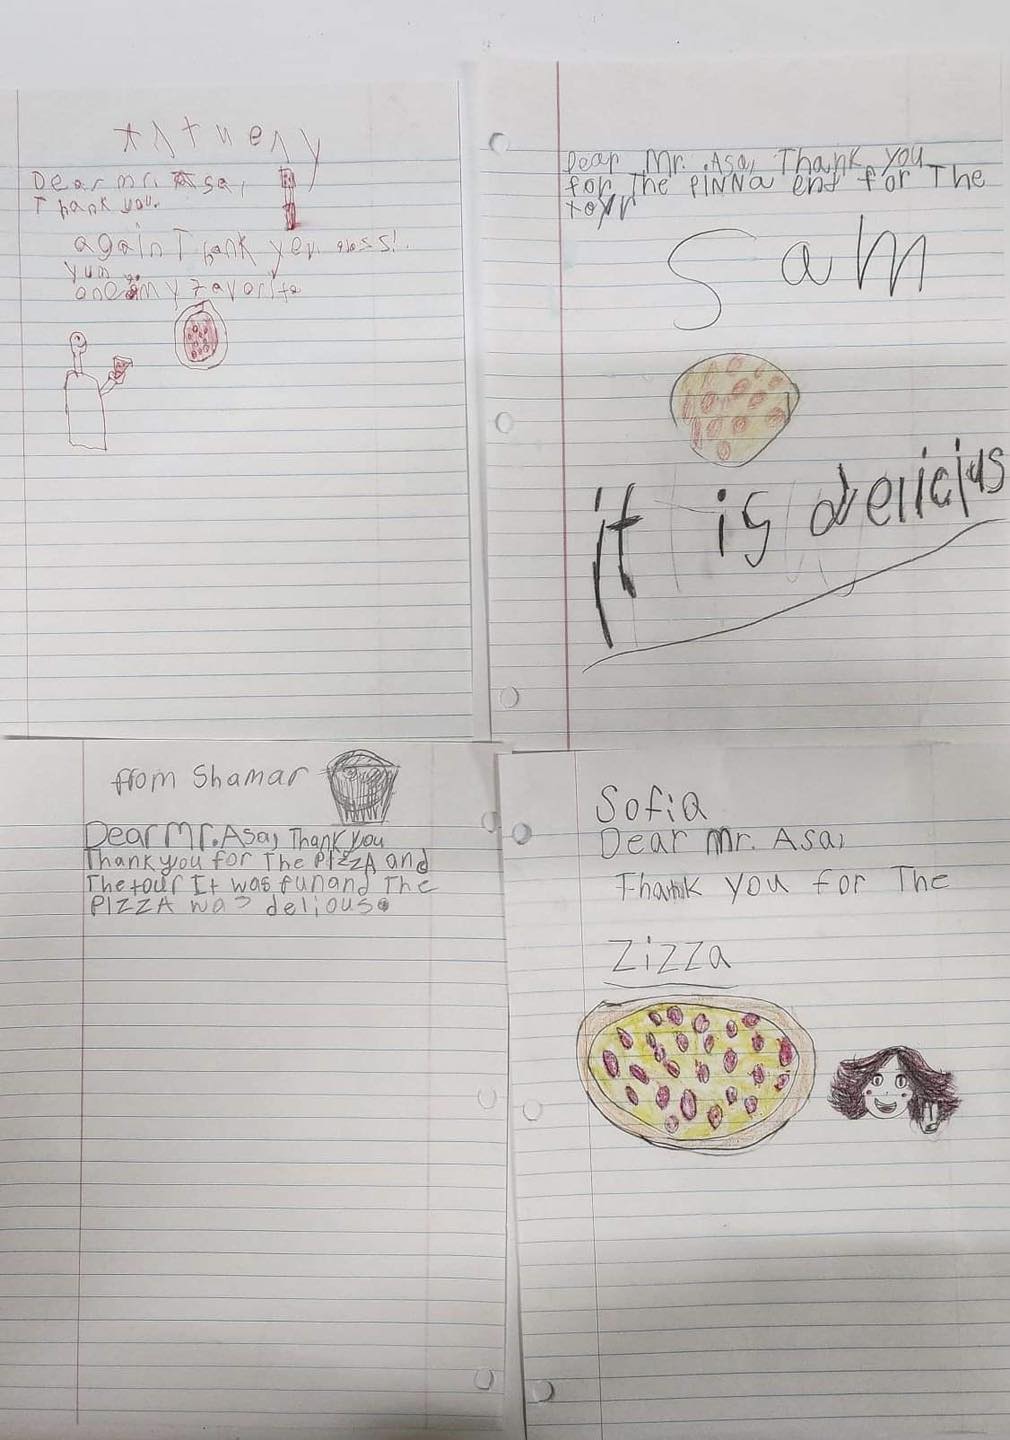 Dear mr. Asa,
Thank you.
again Thank yeu
yum
one my favorite
Dear Mr. Asa, Thank you
for The PINNa ent for The
Sam
it is
from Shamar
Dear Mr. Asa, Thank you
Thank you for The PIZZA and
The tour It was fun and The
PIZZA was delious.
Sofia
Dear Mr. Asa,
Thank you for The
Zizza